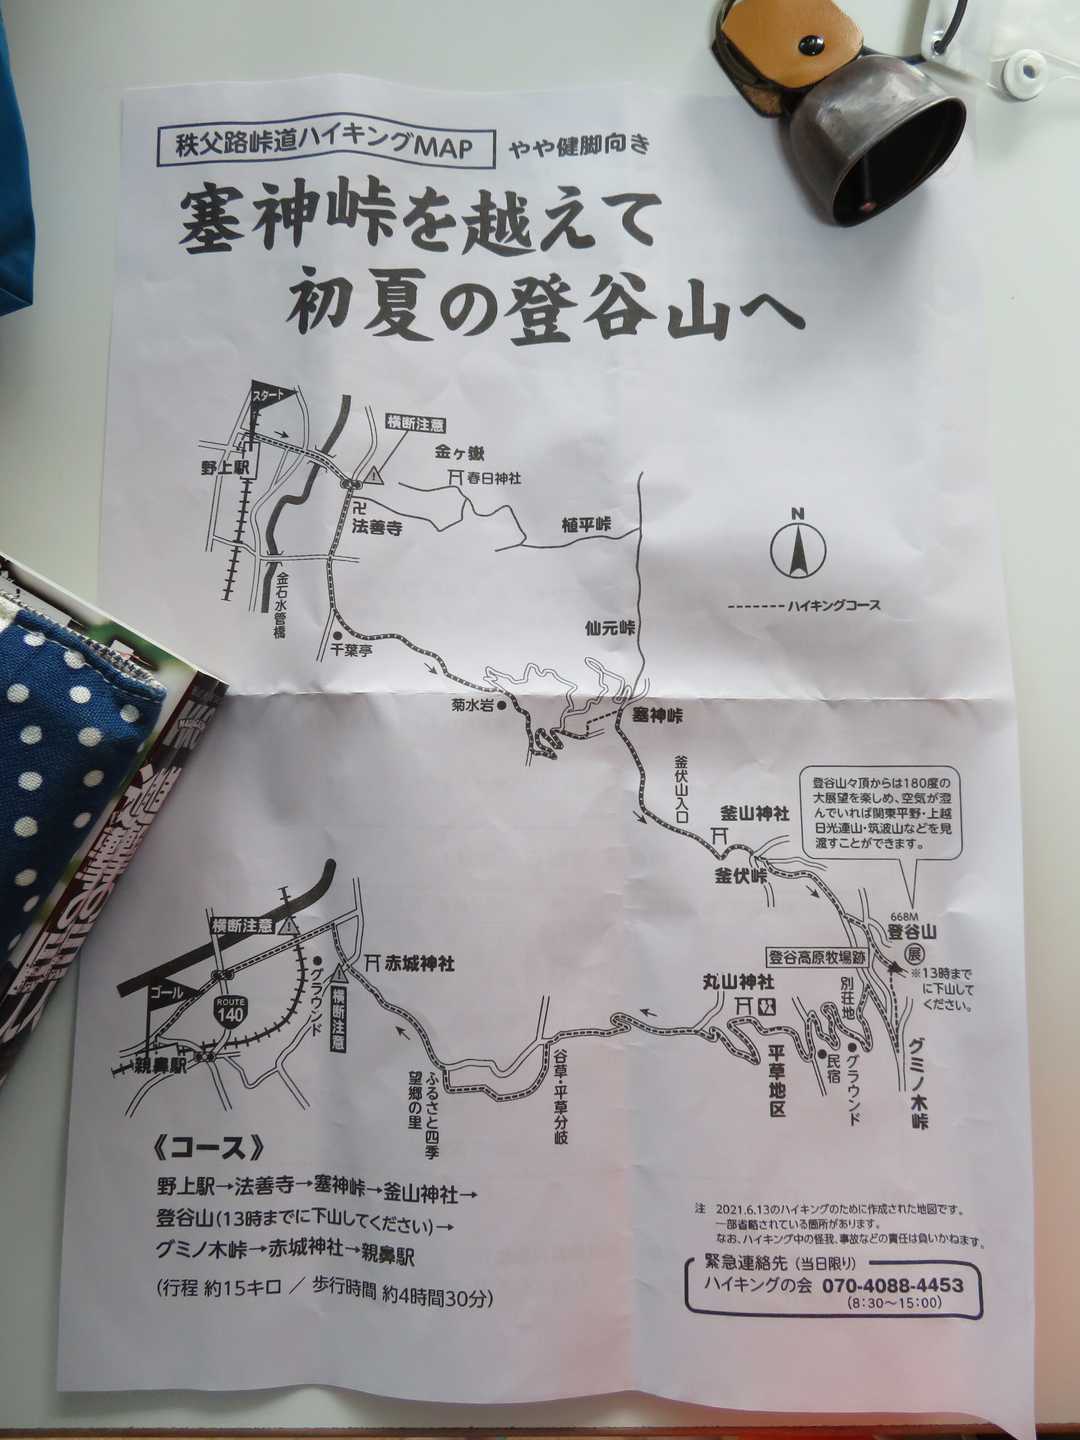 秩父路峠道ハイキングMAP やや健脚向き
塞神峠を越えて
初夏の登谷山へ
スタート
横断注意
野上駅
金ヶ嶽
春日神社
卍
法善寺
植平峠
N
金石水管橋
ハイキングコース
仙元峠
千葉亭
菊水岩
塞神峠
釜伏山入口
登谷山々頂からは180度の
大展望を楽しめ、空気が澄
んでいれば関東平野・上越
日光連山・筑波山などを見
渡すことができます。
釜山神社
釜伏峠
668M
登谷山
展
※13時まで
に下山して
ください。
登谷高原牧場跡
別荘地
横断注意
グラウンド
赤城神社
丸山神社
ゴール
ROUTE
140
横断注意
親鼻駅
ふるさと四季
望郷の里
谷草・平草分岐
平草地区
民宿
グラウンド
グミノ木峠
《コース》
野上駅→法善寺→塞神峠→釜山神社→
登谷山(13時までに下山してください)→
グミノ木峠→赤城神社→親鼻駅
(行程 約15キロ ／ 歩行時間 約4時間30分)
注 2021.6.13のハイキングのために作成された地図です。
一部省略されている箇所があります。
なお、ハイキング中の怪我、事故などの責任は負いかねます。
緊急連絡先 (当日限り)
ハイキングの会 070-4088-4453
(8:30〜15:00)